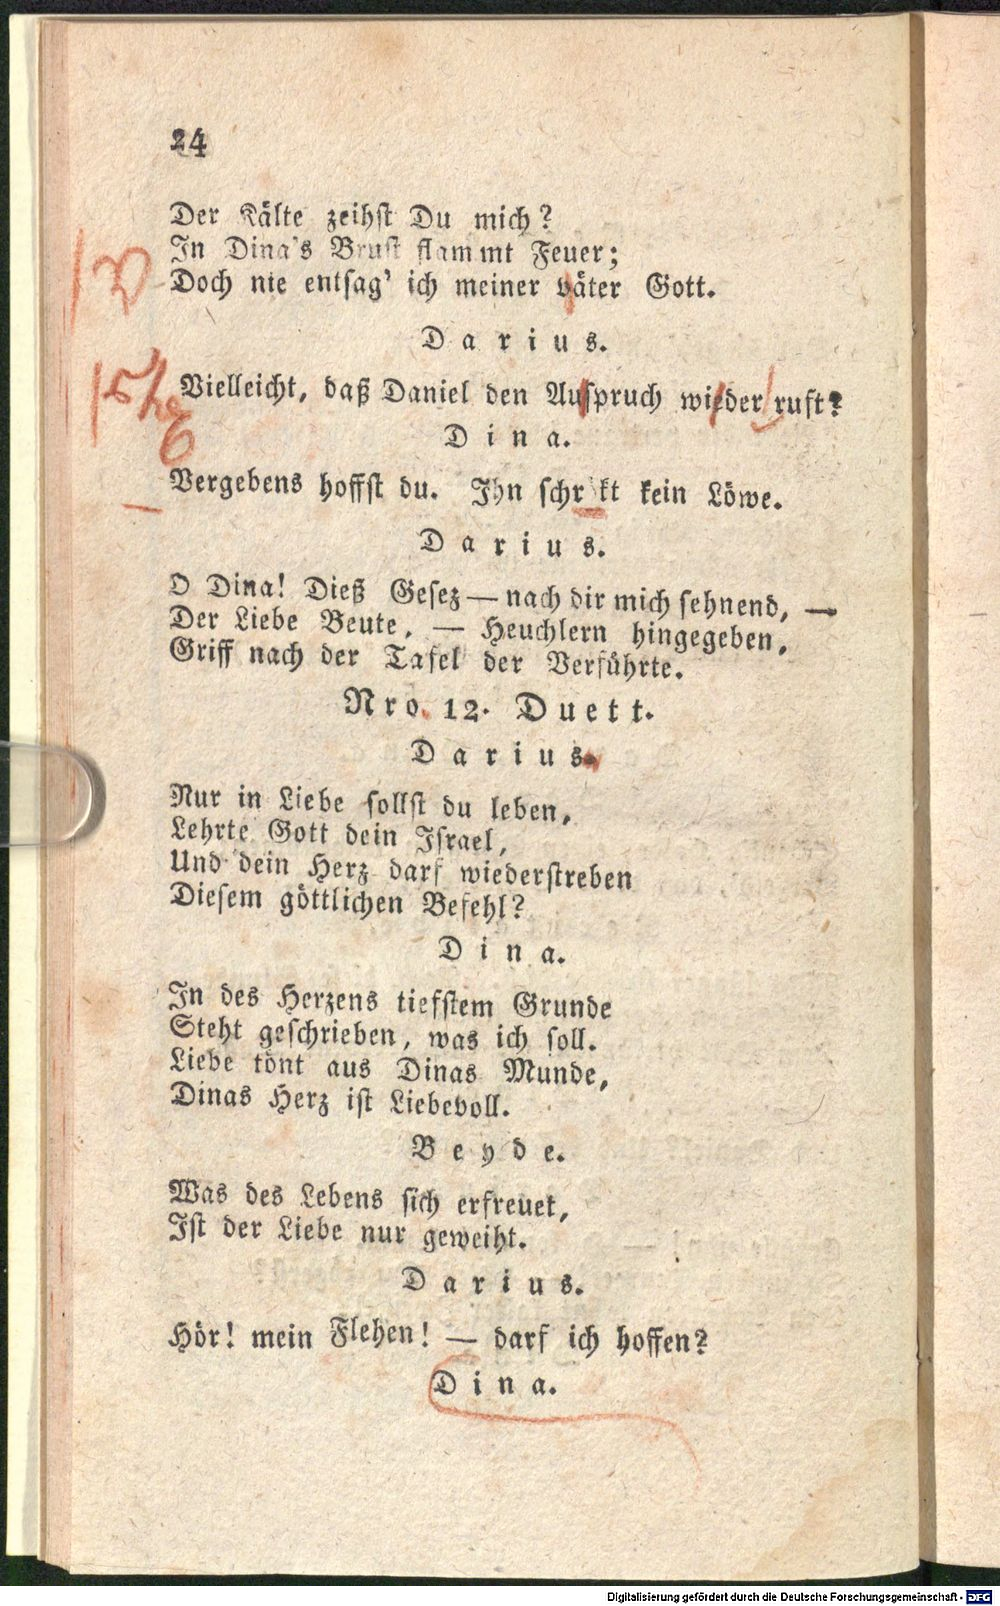 24
Der Kälte zeihst Du mich?
In Dina's Brust flammt Feuer;
Doch nie entsag' ich meiner väter Gott.
Darius.
Vielleicht, daß Daniel den Auspruch wieder ruft?
Dina.
Vergebens hoffst du. Ihn schr kt kein Löwe.
Darius.
O Dina! Dieß Gesez — nach dir mich sehnend, —
Der Liebe Beute, — Heuchlern hingegeben,
Griff nach der Tafel der Verführte.
Nro. 12. Duett.
Darius.
Nur in Liebe sollst du leben,
Lehrte Gott dein Israel,
Und dein Herz darf wiederstreben
Diesem göttlichen Befehl?
Dina.
In des Herzens tiefstem Grunde
Steht geschrieben, was ich soll.
Liebe tönt aus Dinas Munde,
Dinas Herz ist Liebevoll.
Beyde.
Was des Lebens sich erfreuet,
Ist der Liebe nur geweiht.
Darius.
Hör! mein Flehen! — darf ich hoffen?
Dina.
Digitalisierung gefördert durch die Deutsche Forschungsgemeinschaft - DFG